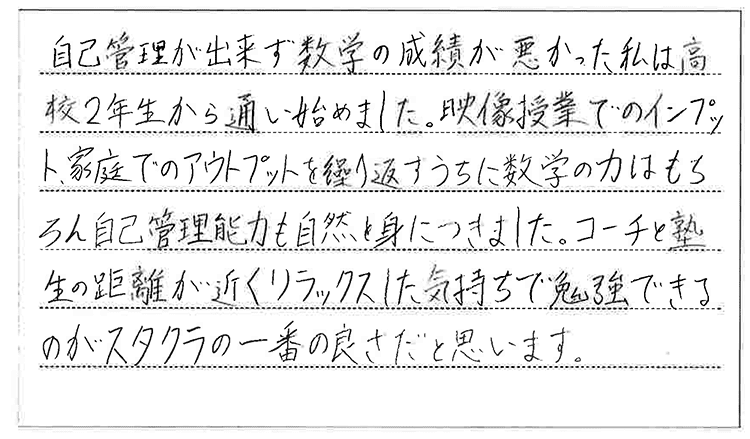 自己管理が出来ず数学の成績が悪かった私は高
校2年生から通い始めました。映像授業でのインプッ
ト、家庭でのアウトプットを繰り返すうちに数学の力はもち
ろん自己管理能力も自然と身につきました。コーチと塾
生の距離が近くリラックスした気持ちで勉強できる
のがスタクラの一番の良さだと思います。